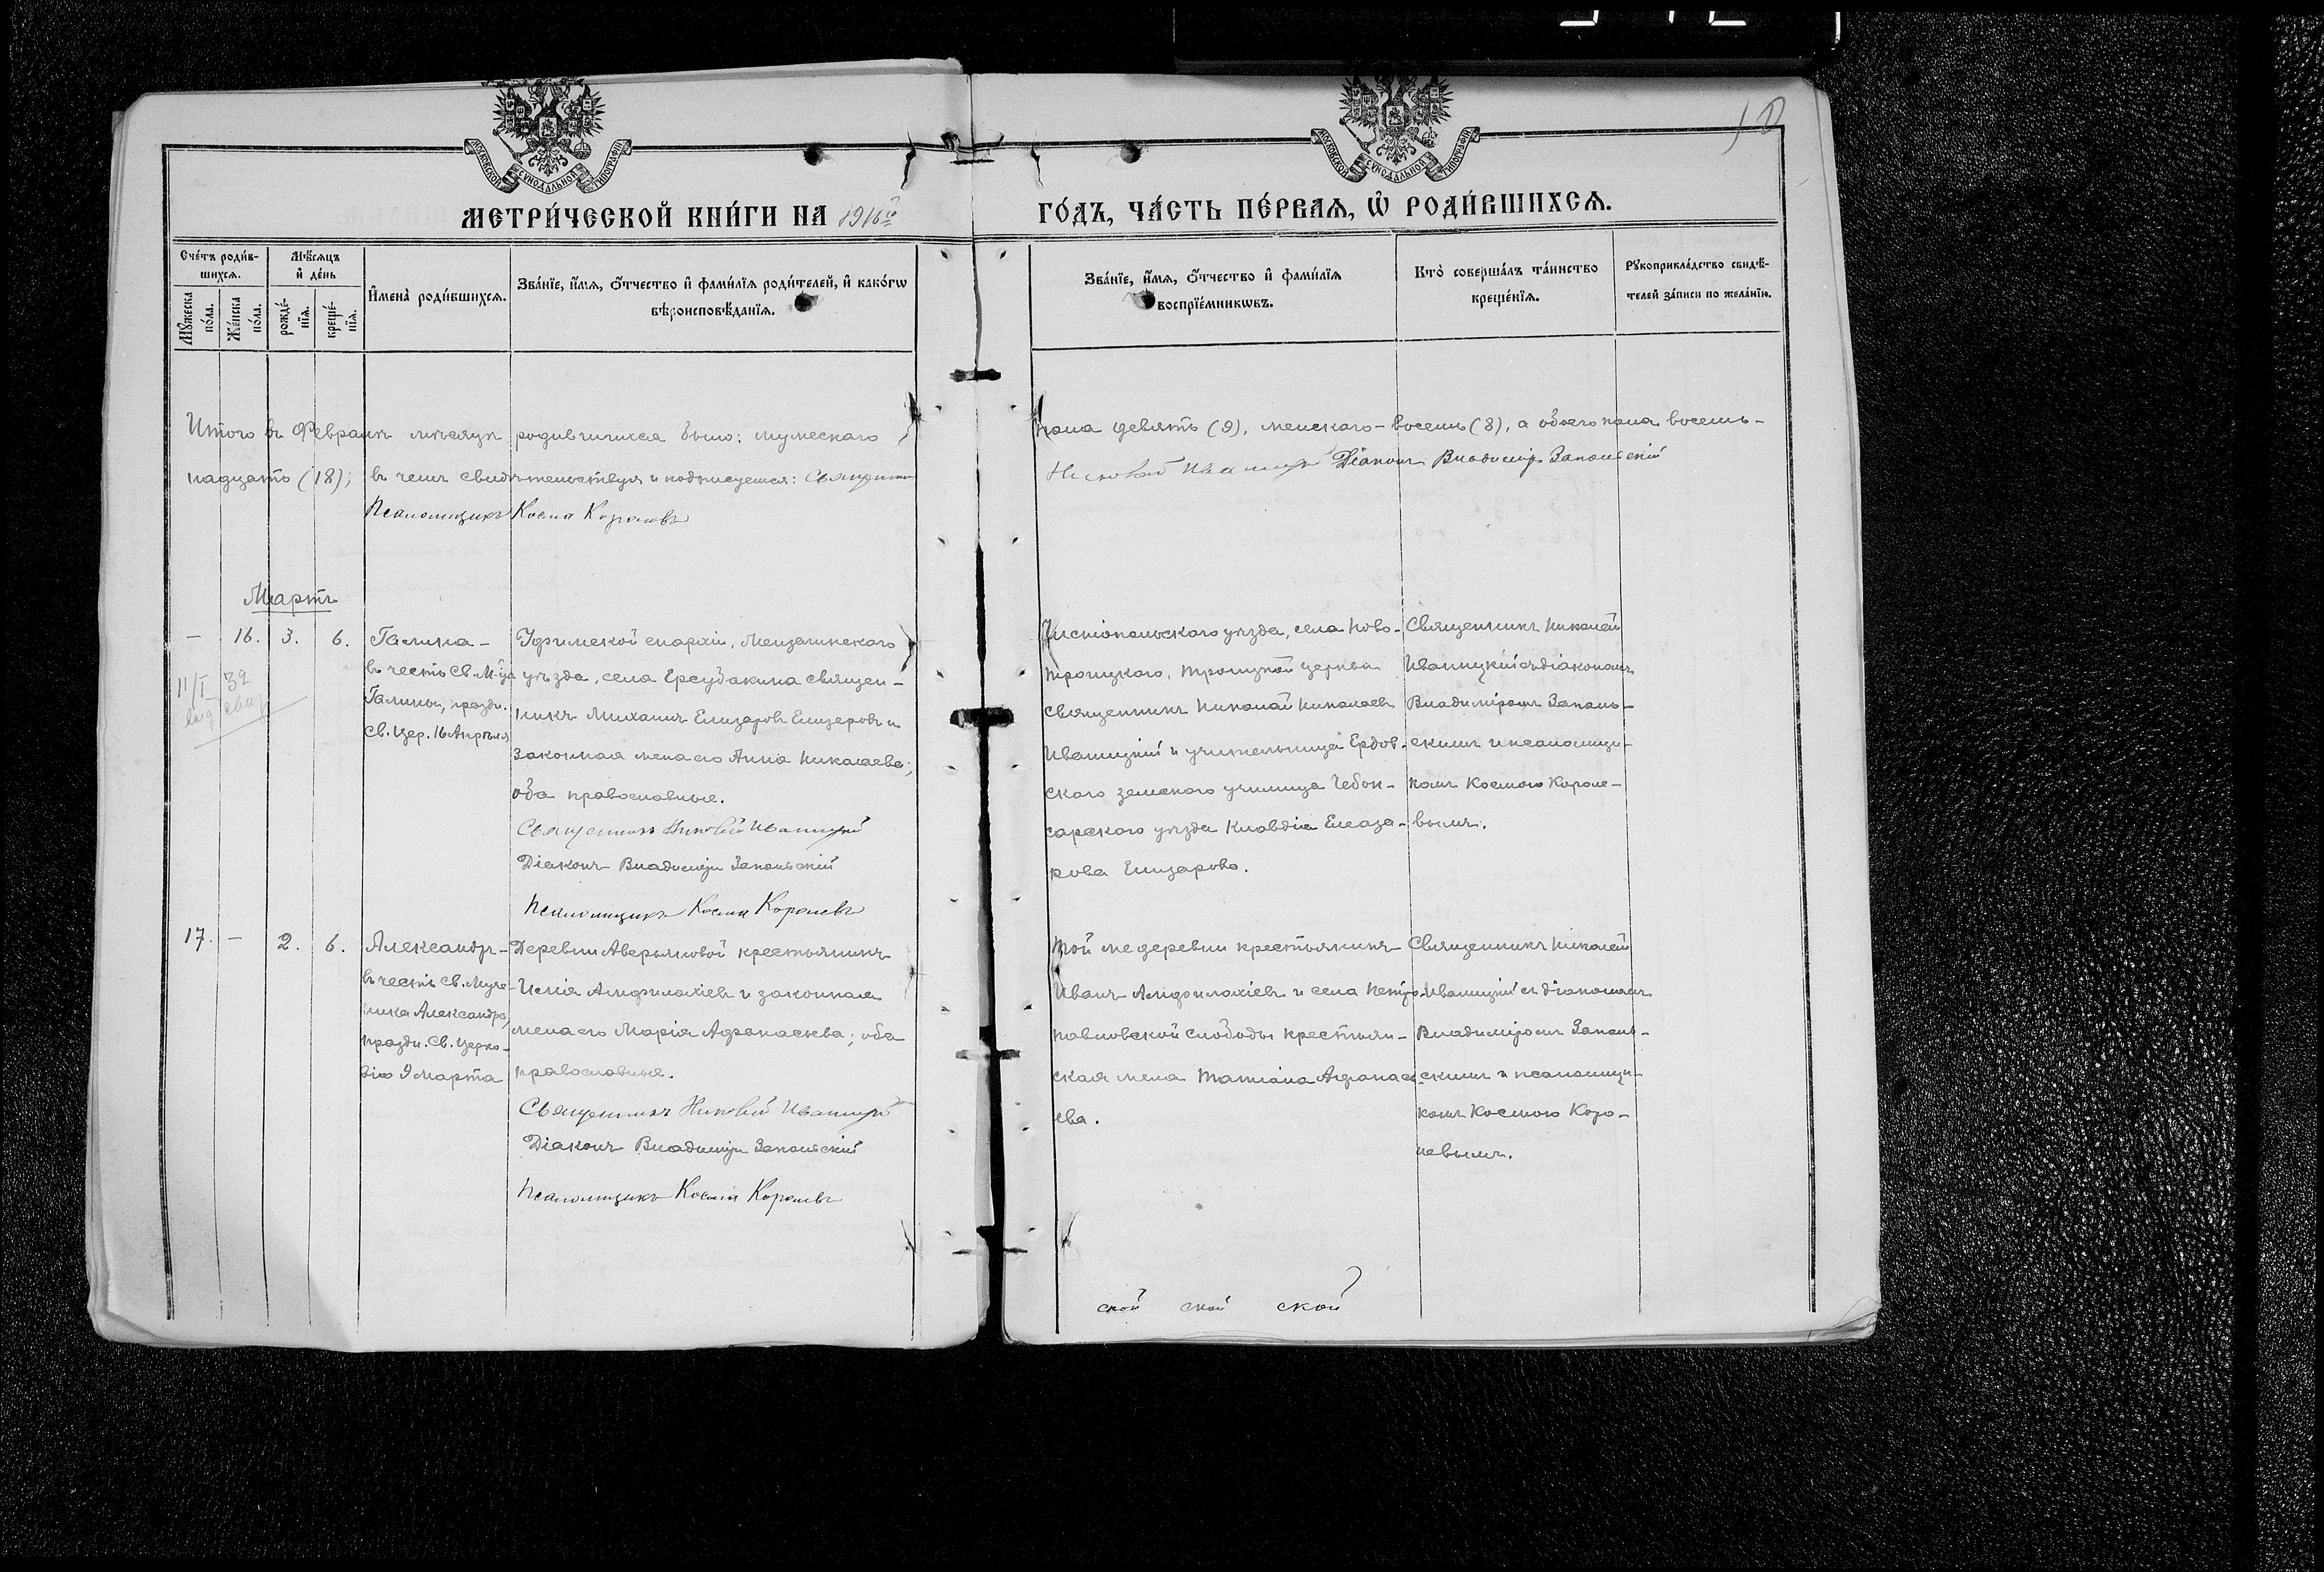 МОСКОВСКОЙ СѴНОДАЛЬНОЙ ТИПОГРАФІИ
МОСКОВСКОЙ СѴНОДАЛЬНОЙ ТИПОГРАФІИ
10
МЕТРИ́ЧЕСКОЙ КНИ́ГИ НА 1916й
ГО́ДЪ, ЧА́СТЬ ПЕ́РВАѦ, Ѡ҆ РОДИ́ВШИХСѦ.
Сче́тъ роди́в-
шихсѧ.
Мѣ́сѧцъ
и҆ де́нь
Мꙋ́жеска
по́ла.
Же́нска
по́ла.
рожде́-
нїѧ.
креще́-
нїѧ.
И҆мена̀ роди́вшихсѧ.
Зва́нїе, и҆́мѧ, ѻ҆́тчество и҆ фами́лїѧ роди́телей, и҆ како́гѡ
вѣроисповѣ́данїѧ.
Зва́нїе, и҆́мѧ, ѻ҆́тчество и҆ фами́лїѧ
воспрїе́мникѡвъ.
Кто̀ соверша́лъ та́инство
креще́нїѧ.
Рꙋкоприкла́дство свидѣ́-
телей за́писи по жела́нїю.
Итого въ Февралѣ мѣсяцѣ родившихся было: мужескаго
пола девять (9), женскаго - восемь (8), а обоего пола восемь-
надцать (18); въ чемъ свидѣтельствуя и подписуемся: Священникъ
Николай Иваницкій Діаконъ Владиміръ Запольскій
Псаломщикъ Косма Королевъ
Мартъ
- 16. 3. 6.
Галина -
въ честь Св. М-цы
Галины, праздн.
Св. Цер. 16 Апрѣля
Уфимской епархіи, Мензелинскаго
уѣзда, села Ерсубакина священ-
никъ Михаилъ Елизаровъ Елизаровъ и
законная жена его Анна Николаева;
оба православные.
Священникъ Николай Иваницкій
Діаконъ Владиміръ Запольскій
Псаломщикъ Косма Королевъ
Чистопольскаго уѣзда, села Ново-
троицкаго, Троицкой церкви
священникъ Николай Николаевъ
Иваницкій и учительница Ердов-
скаго земскаго училища Чебок-
сарскаго уѣзда Клавдія Елеаза-
рова Елизарова.
Священникъ Николай
Иваницкій съ діакономъ
Владиміромъ Заполь-
скимъ и псаломщи-
комъ Космою Короле-
вымъ.
17. - 2. 6.
Александръ -
въ честь Св. Муче-
ника Александра,
праздн. Св. Церко-
вію 9 Марта
Деревни Аверьяновой крестьянинъ
Илія Амфилохіевъ и законная
жена его Марія Афанасьева; оба
православные.
Священникъ Николай Иваницкій
Діаконъ Владиміръ Запольскій
Псаломщикъ Косма Королевъ
Той же деревни крестьянинъ
Иванъ Амфилохіевъ и села Петро-
павловской слободы крестьян-
ская жена Татіана Афанась-
ева.
Священникъ Николай
Иваницкій съ діакономъ
Владиміромъ Заполь-
скимъ и псаломщи-
комъ Космою Коро-
левымъ.
ской ской ской